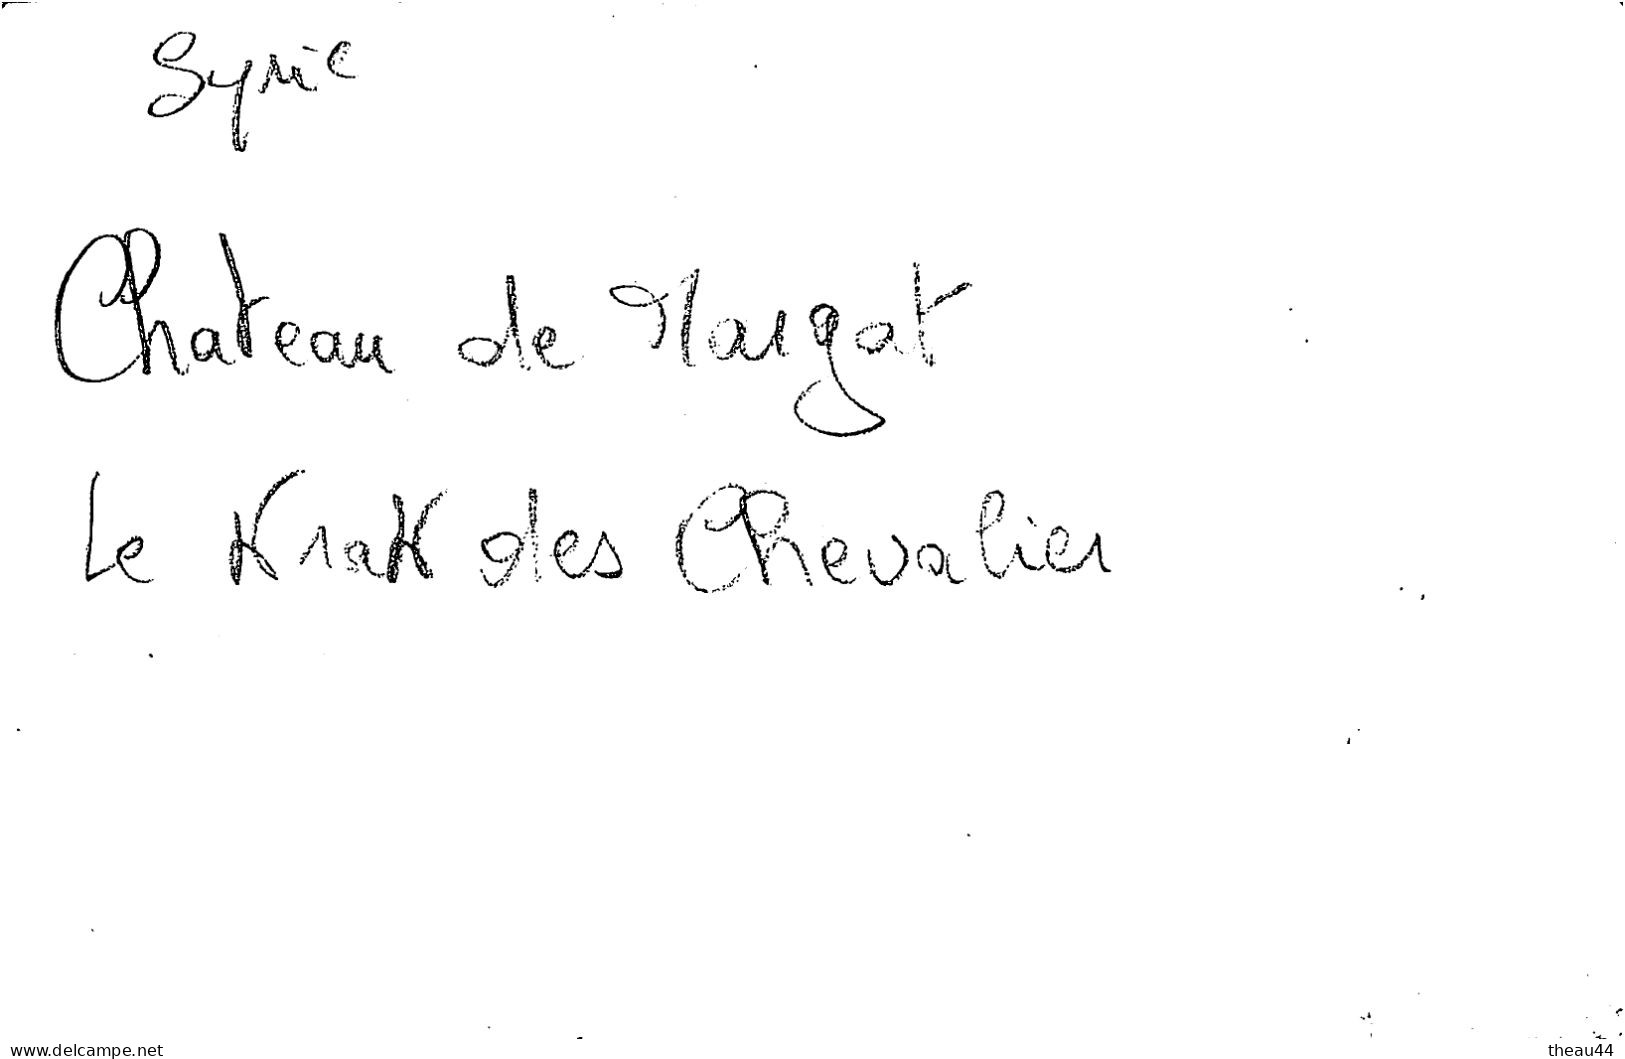 Syrie
Chateau de Margat
Le Krak des Chevalier
www.delcampe.net
theau44